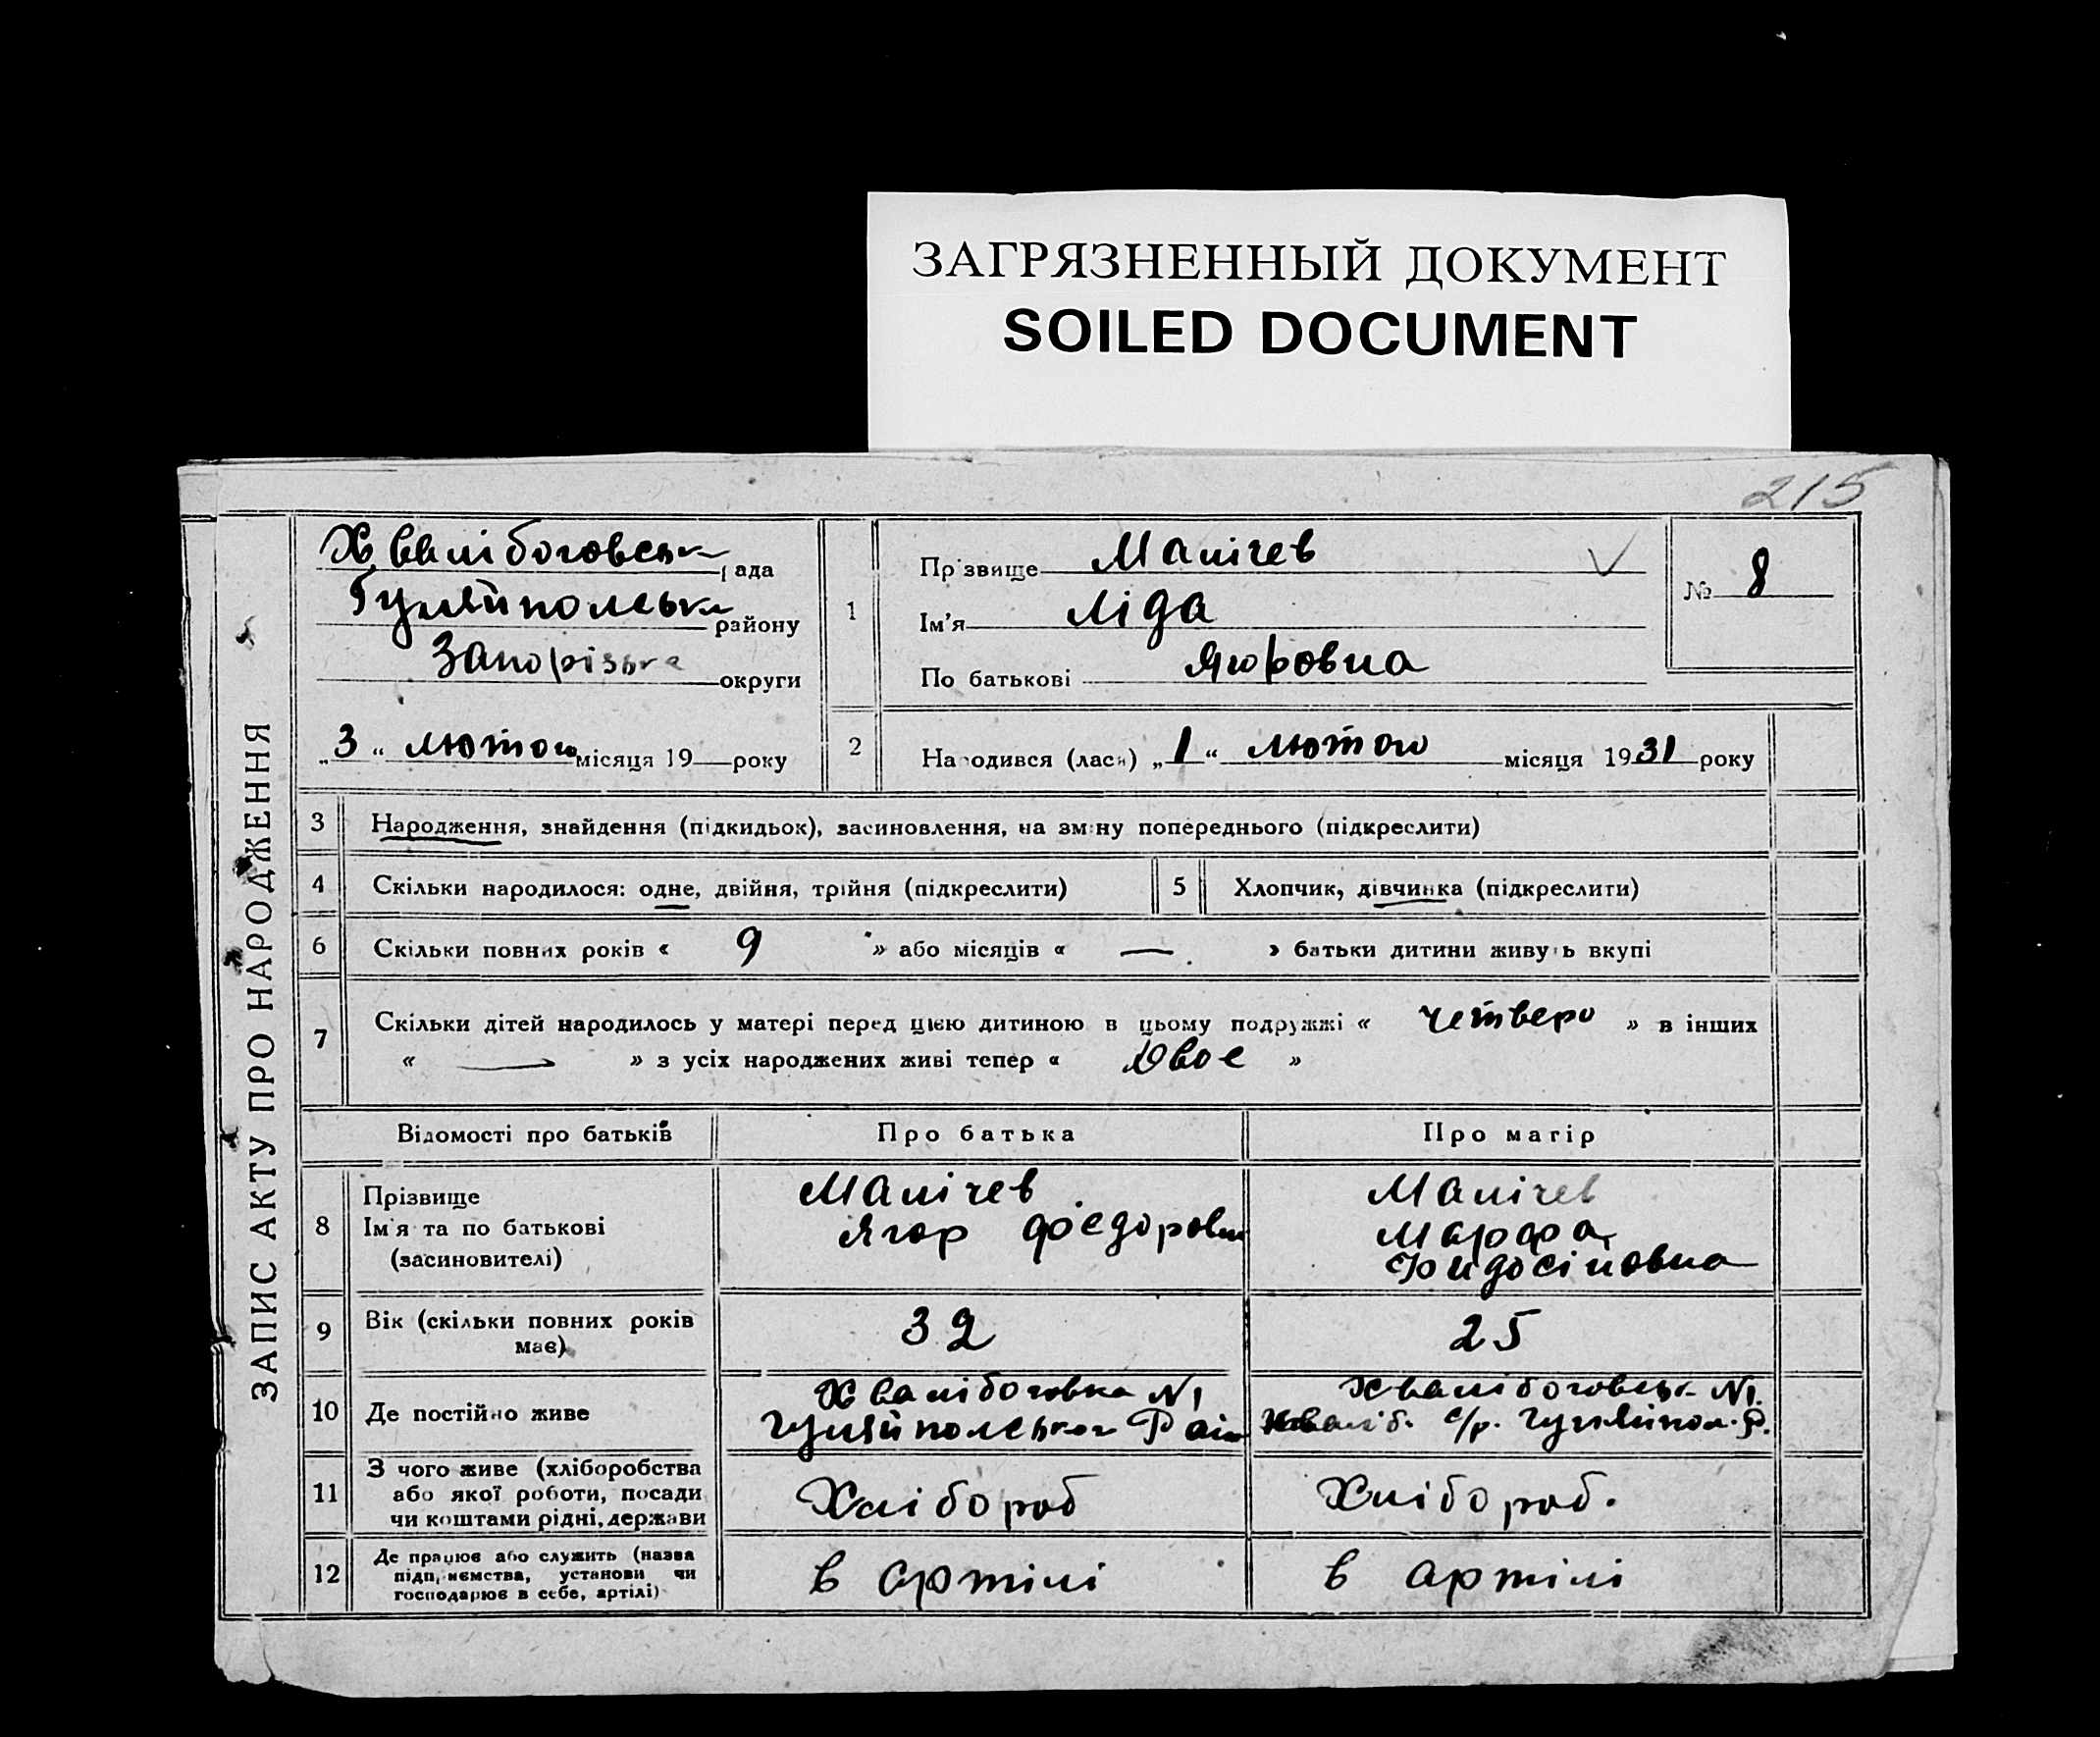 ЗАГРЯЗНЕННЫЙ ДОКУМЕНТ
SOILED DOCUMENT
215
ЗАПИС АКТУ ПРО НАРОДЖЕННЯ
Хвалібоговськ рада
Гуляйпольськ району
Запорізьке округи
„3“ лютого місяця 19 року
1
Прізвище Малічев
Ім'я Ліда
По батькові Ягоровна
№ 8
2
Народився (лася) „1“ лютого місяця 1931 року
3 Народження, знайдення (підкидьок), засиновлення, на зміну попереднього (підкреслити)
4 Скільки народилося: одне, двійня, трійня (підкреслити) 5 Хлопчик, дівчинка (підкреслити)
6 Скільки повних років « 9 » або місяців « — » батьки дитини живуть вкупі
7 Скільки дітей народилось у матері перед цією дитиною в цьому подружжі « четверо » в інших
« — » з усіх народжених живі тепер « Двоє »
Відомості про батьків Про батька Про матір
8 Прізвище
Ім'я та по батькові
(засиновителі)
Малічев
Ягор Федорович
Малічев
Марфа
Фидосіивна
9 Вік (скільки повних років
має)
32
25
10 Де постійно живе
Хвалібоговка N1
Гуляйпольського Рай
Хвалібоговськ N1.
Хваліб. с/р. Гуляйпол. Р.
11 З чого живе (хліборобства
або якої роботи, посади
чи коштами рідні, держави
Хлібороб
Хлібороб.
12 Де працює або служить (назва
підприємства, установи чи
господарює в себе, артілі)
в артілі
в артілі